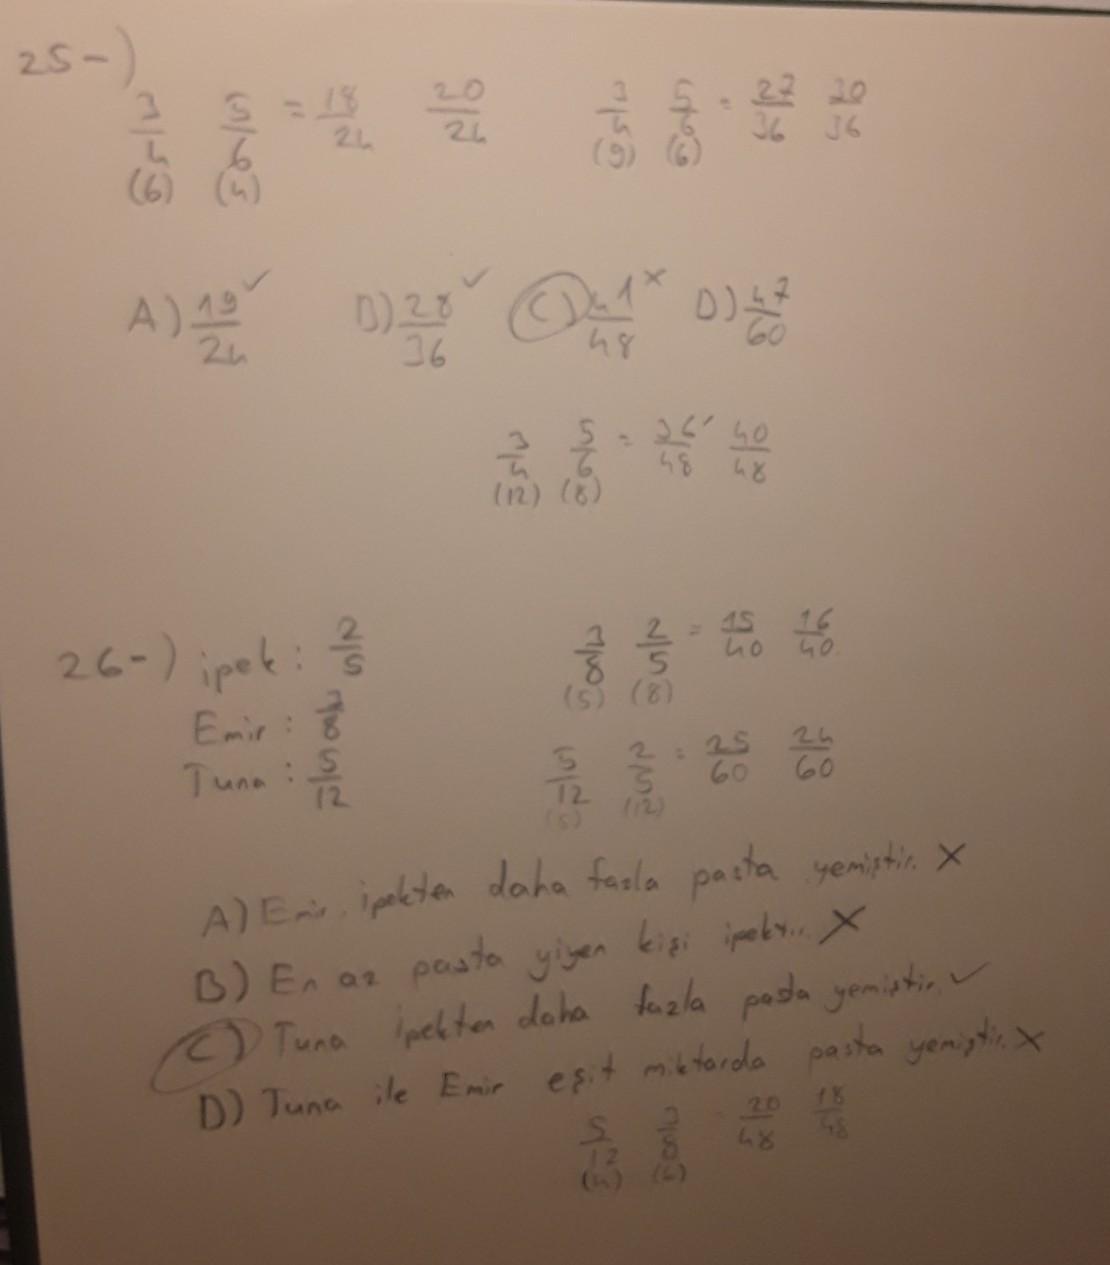 25-)
3/4 5/6 = 18/24 20/24 3/4 5/6 = 27/36 30/36
(6) (4) (9) (6)
A) 19/24 ✓ B) 28/36 ✓ C) 41/48 × D) 47/60
3/4 5/6 = 36/48 40/48
(12) (8)
26-) ipek : 2/5 3/8 2/5 = 15/40 16/40
(5) (8)
Emir : 3/8
Tuna : 5/12 5/12 2/5 = 25/60 24/60
(5) (12)
A) Emir, ipekten daha fazla pasta yemiştir. ×
B) En az pasta yiyen kişi ipektir. ×
C) Tuna ipekten daha fazla pasta yemiştir. ✓
D) Tuna ile Emir eşit miktarda pasta yemiştir. ×
5/12 3/8 = 20/48 18/48
(4) (6)